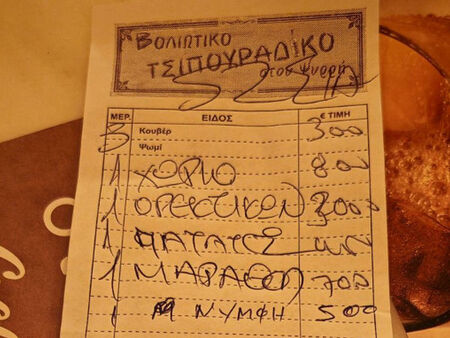 ΒΟΛΙΩΤΙΚΟ
ΤΣΙΠΟΥΡΑΔΙΚΟ
στου Ψυρρή
ΜΕΡ. ΕΙΔΟΣ € ΤΙΜΗ
3 Κουβέρ 300
Ψωμί
1 ΧΩΡΙΟ 800
1 ΟΡΕΚΤΙΚΩΝ
1 ΠΑΤΑΤΕΣ
1 ΜΑΡΑΘΟΠ 700
1 ΝΥΜΦΗ 500